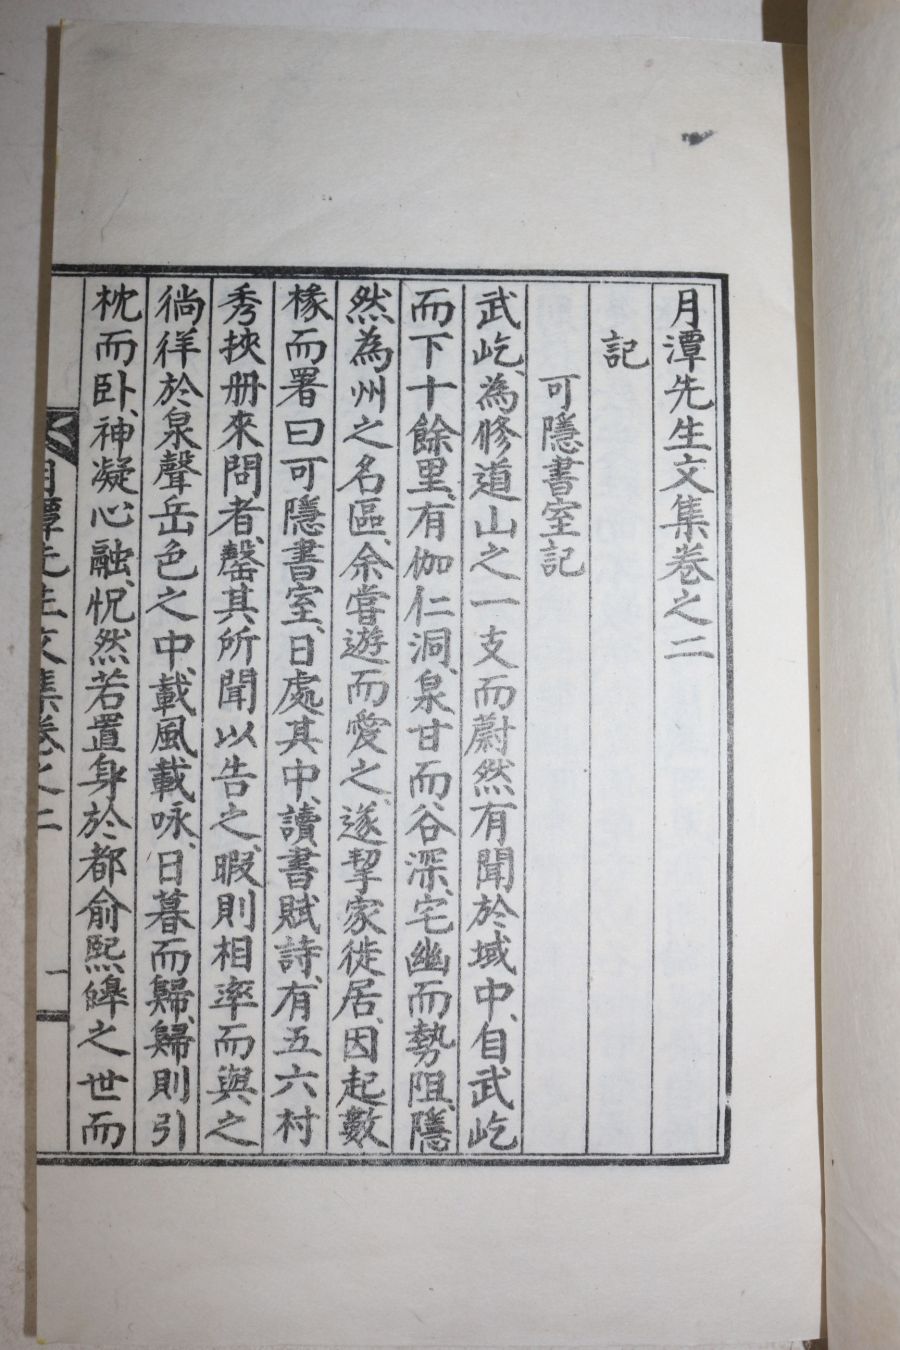 月潭先生文集卷之二
記
可隱書室記
武屹、為修道山之一支而蔚然有聞於域中、自武屹
而下十餘里、有伽仁洞、泉甘而谷深、宅幽而勢阻、隱
然為州之名區、余嘗遊而愛之、遂挈家徙居、因起數
椽而署曰可隱書室、日處其中、讀書賦詩、有五六村
秀挾册來問者、罄其所聞以告之、暇則相率而與之
徜徉於泉聲岳色之中、載風載咏、日暮而歸、歸則引
枕而卧、神凝心融、怳然若置身於都俞熙皞之世而
月潭先生文集卷之二
一